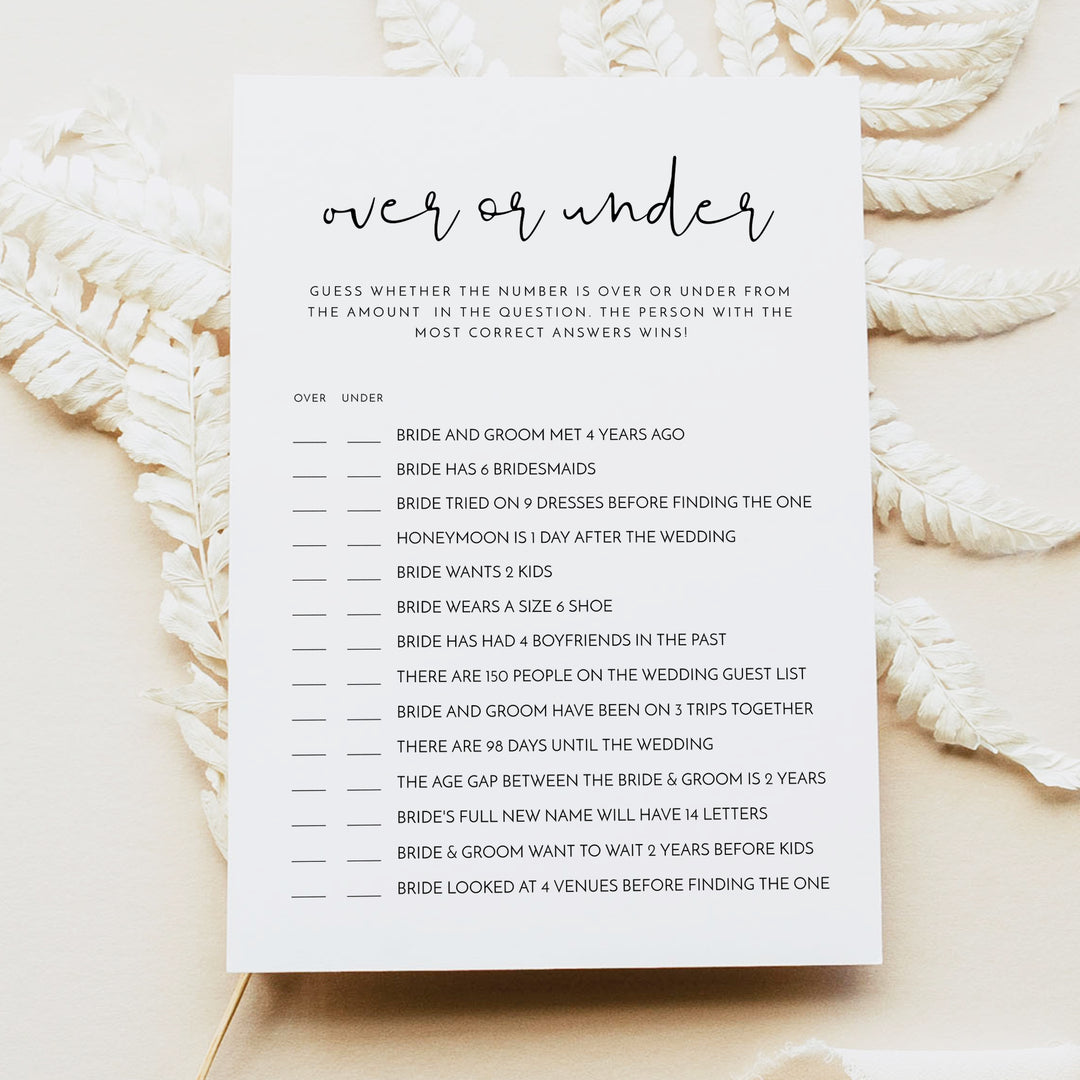 over or under
GUESS WHETHER THE NUMBER IS OVER OR UNDER FROM
THE AMOUNT IN THE QUESTION. THE PERSON WITH THE
MOST CORRECT ANSWERS WINS!
OVER UNDER
BRIDE AND GROOM MET 4 YEARS AGO
BRIDE HAS 6 BRIDESMAIDS
BRIDE TRIED ON 9 DRESSES BEFORE FINDING THE ONE
HONEYMOON IS 1 DAY AFTER THE WEDDING
BRIDE WANTS 2 KIDS
BRIDE WEARS A SIZE 6 SHOE
BRIDE HAS HAD 4 BOYFRIENDS IN THE PAST
THERE ARE 150 PEOPLE ON THE WEDDING GUEST LIST
BRIDE AND GROOM HAVE BEEN ON 3 TRIPS TOGETHER
THERE ARE 98 DAYS UNTIL THE WEDDING
THE AGE GAP BETWEEN THE BRIDE & GROOM IS 2 YEARS
BRIDE'S FULL NEW NAME WILL HAVE 14 LETTERS
BRIDE & GROOM WANT TO WAIT 2 YEARS BEFORE KIDS
BRIDE LOOKED AT 4 VENUES BEFORE FINDING THE ONE